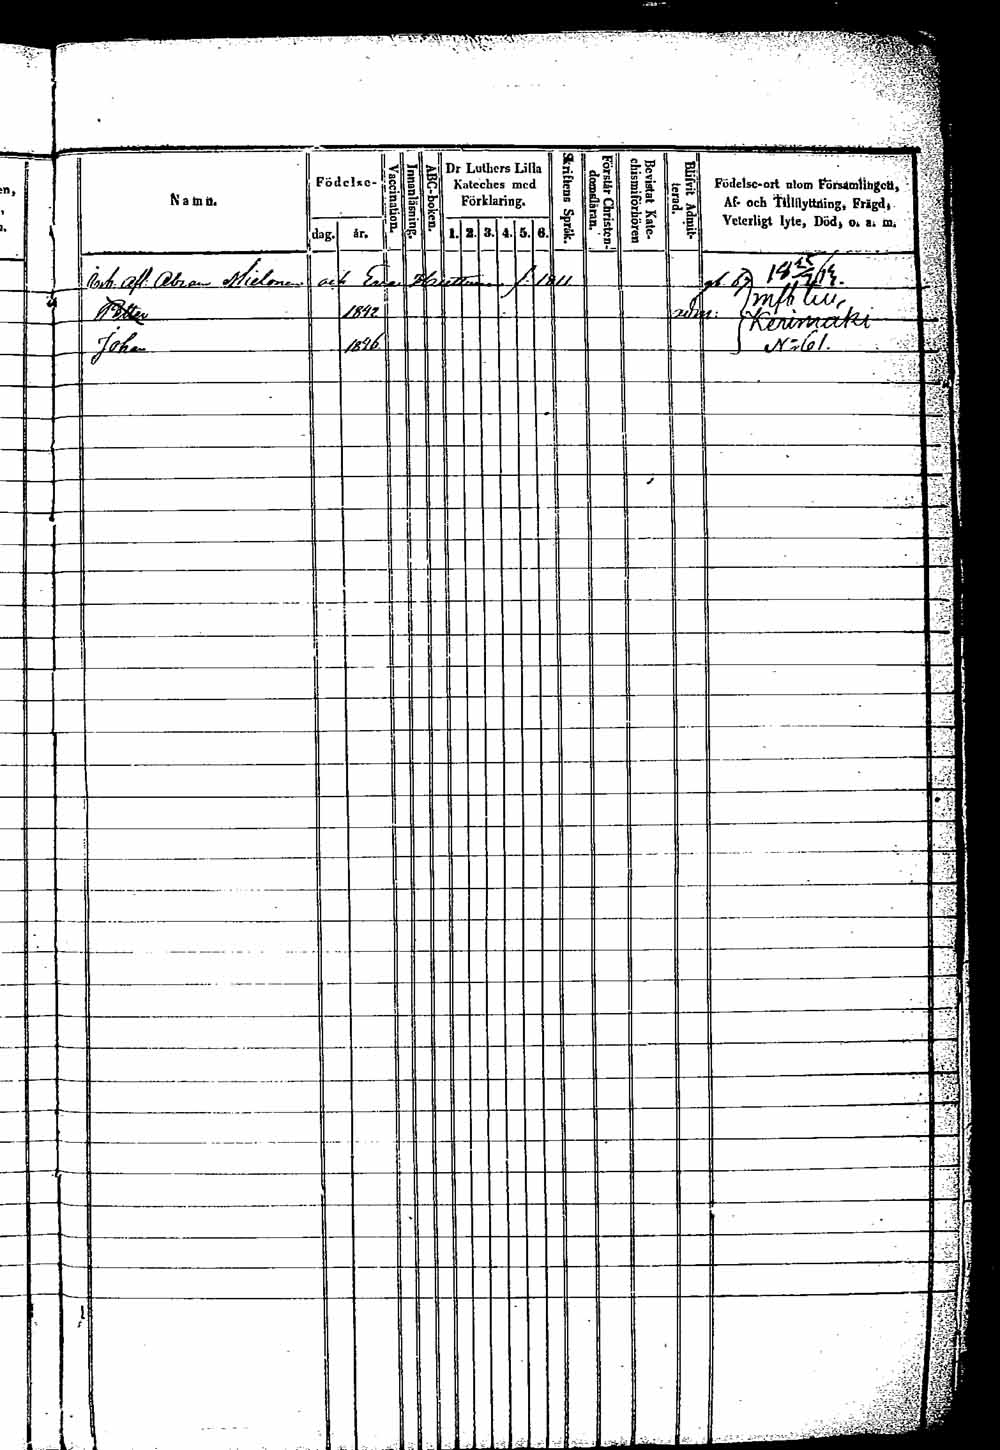 Namn.
Födelse-
dag.
år.
Vaccination.
Innanläsning.
ABC-boken.
Dr Luthers Lilla
Kateches med
Förklaring.
1. 2. 3. 4. 5. 6.
Skriftens Språk.
Förstår Christen-
domsläran.
Bevistat Kate-
chismiförhören
Blifvit Admit-
terad.
Födelse-ort utom Församlingen,
Af- och Tillflyttning, Frägd,
Veterligt lyte, Död, o. a. m.
Afl. Abram Mielonen och Eva f. 1811
Petter 1842
Johan 1846
Kerimäki
N:o 61.